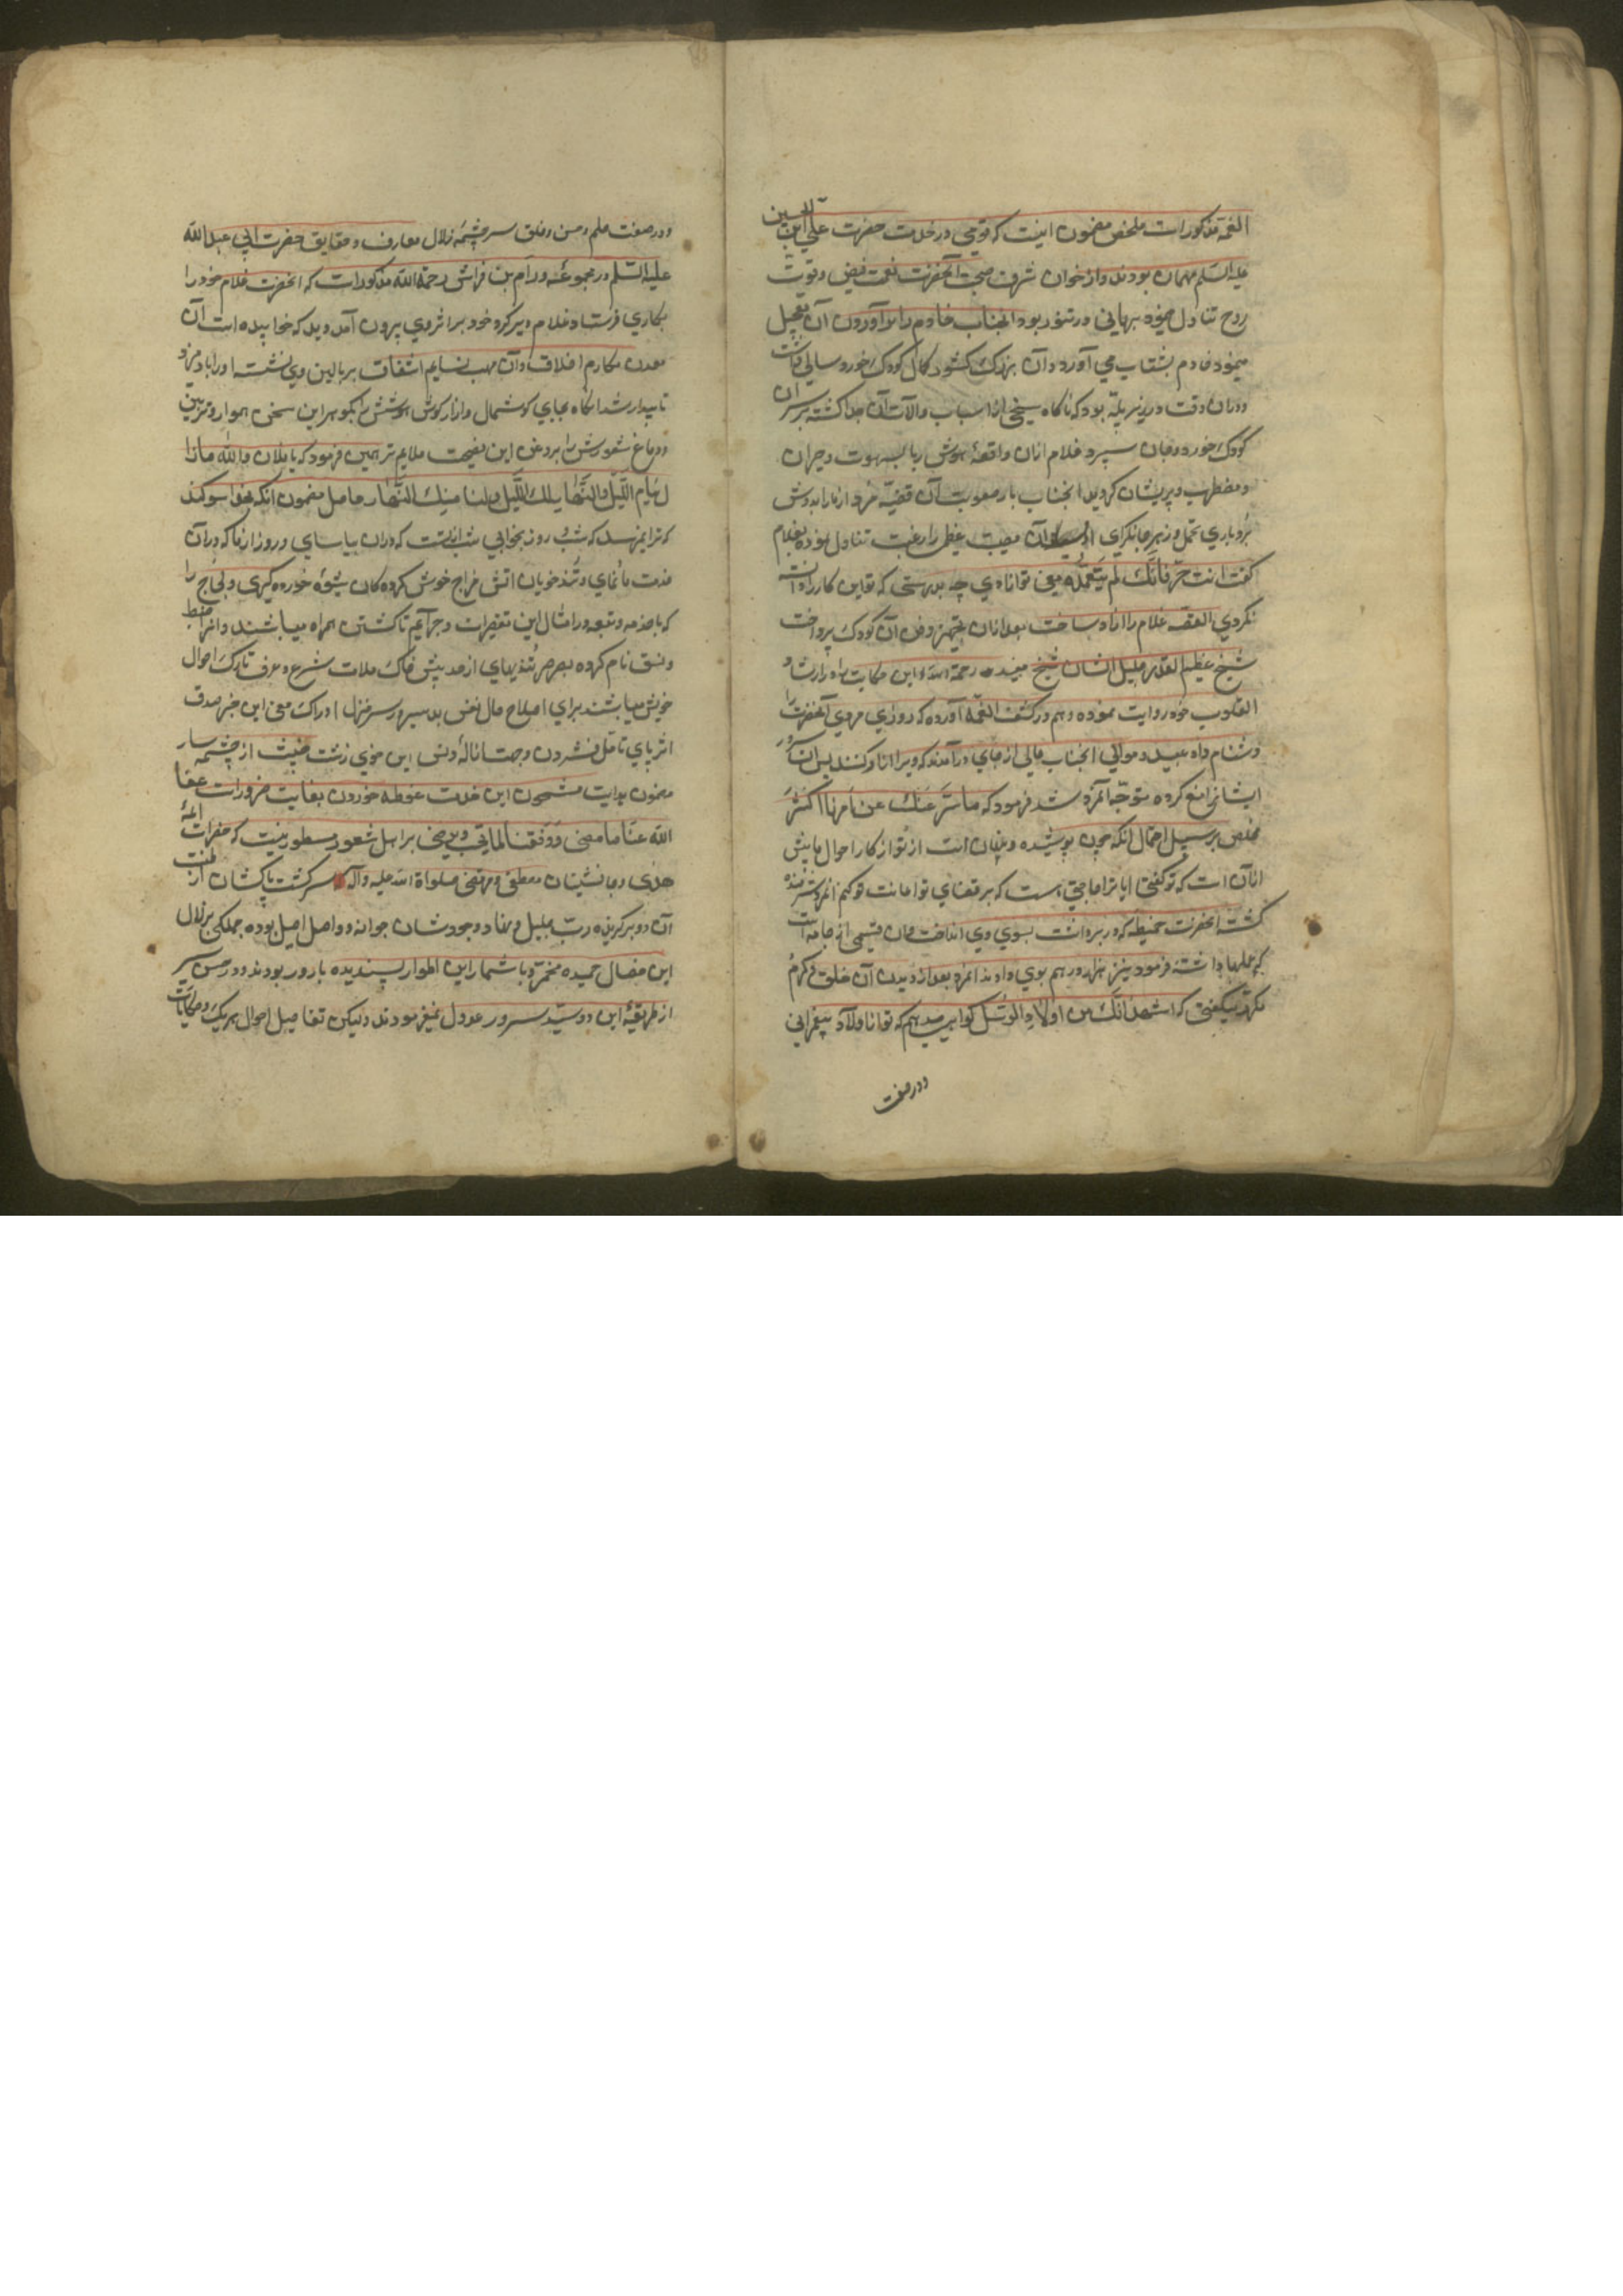 الغمه مذکور است ملخص مضمون اینست که قومی در خدمت حضرت علی ابن الحسین
علیه السلم مهمان بودند و از خوان شرف صحبت آنحضرت نعمت فیض و قوت
روح تناول مینمود بریانی در تنور بود انجناب خادم را در آوردن آن تعجیل
میمود خادم بشتاب می آورد و آن بزرگ کشور کمال کودک خورد سالی داشت
و در آن وقت در زیر پله بود که ناکاه سیخی از اسباب و آلات آن جدا کشته بر سر آن
کودک خورد و جان سپرد غلام ازان واقعهٔ هوش ربا مبهوت و حیران
و مضطرب و پریشان کردید انجناب بار صعوبت آن قضیه مرد ازما را بدوش
بردباری تحمل و زهر جانکزای آن مصیبت عظمی را رغبت تناول نموده بغلام
کفت انت حرّ فانّک لم تتعمّده یعنی تو ازادی چه بدرستی که تو این کار را دانسته
نکردی القصه غلام را ازاد ساخت بعد ازان بتجهیز و دفن آن کودک پرداخت
شیخ عظیم القدر جلیل الشان شیخ مفید رحمة الله این حکایت را در ارشاد
القلوب خود روایت نموده و هم در کشف الغمه آورده که روزی مردی آنحضرت را
دشنام داد عبید و موالی انجناب عالی از جای در آمدند که ویرا ازار کنند پس آن سرور
ایشانرا منع کرده متوجه آنمرد شد فرمود که ما ستر عنک عن امرنا اکثر
مخلص بر سبیل اجمال انکه چون پوشیده و پنهان است از تو از کار احوال ما بیش
ازان است که تو کفتی ایا ترا حاجتی است که بر قضای تو اعانت تو کنم انمرد شرمنده
کشت انحضرت خمیطه که در بر داشت بسوی وی انداخت و آن قسمی از جامه است
که علمها داشته فرمود نیز هزار درهم بوی دادند انمرد بعد از دیدن آن خلق و کرم
مکرر میکفتی که اشهد انّک من اولاد الرسل کواهی میدهم که تو از اولاد پیغمبرانی
و در صفت
و در صفت حلم و حسن و خلق سرچشمه زلال معارف و حقایق حضرت ابی عبد الله
علیه السلم در مجموعهٔ ورام بن فراس رحمة الله مذکور است که انحضرت غلام خود را
بکاری فرستاد غلام دیر کرد خود بر اثر وی بیرون آمد دید که خوابیده است آن
معدن مکارم اخلاق و آن مهب نسایم اشفاق بر بالین وی نشست او را باد میزد
تا بیدار شد انکاه بجای کوشمال و ازار کوش هوشش را بکوهر این سخن هموار و تزیین
و دماغ شعورش را بروغن این نصیحت ملایم تر همین فرمود که یا فلان والله ماذا
لک تنام اللیل والنهار لک اللیل ولنا منک النهار حاصل مضمون انکه بخدا سوکند
که ترا نمیرسد که شب و روز بخوابی شب از تست که دران بیاسای و روز از ما که در آن
خدمت ما نمای و تندخویان اتش مزاج خوش کرده کان شیوه خورده کیری و لجاج را
که باصدمه و تبعه در امثال این تقصیرات و جرایم تا کشتن همراه میباشند و انرا ضبط
و نسق نام کرده بصرصر تندیهای از حد بیش خاک ملامت شرع و عرف تارک احوال
خویش میباشند برای اصلاح حال نفس بد سیر و سر منزل ادراک معنی این خبر صدق
اثر پای تامل فشردن و جهت ازاله دنس این خوی زشت خبیث از چشمه سار
مضمون هدایت مشحون این خدمت غوطه خوردن بغایت ضرورت عفا
الله عنا ما مضی و وفقنا لما یحب و یرضی بر اهل شعور مسطور نیست که حضرات ائمهٔ
هدی و جانشینان مصطفی و مرتضی صلواة الله علیه و آله سرکشت پاکشان از طینت
آن دو برکزیده رب جلیل و نهاد وجودشان جوانه دو اصل اصیل بوده جملکی بر زلال
این خصال حمیده مخمر و باثمار این اطوار پسندیده بارور بودند و در حسن سیر
از طریقهٔ این دو سید سرور عدول نمیفرمودند و لیکن تفاصیل احوال هر یک و حکایات